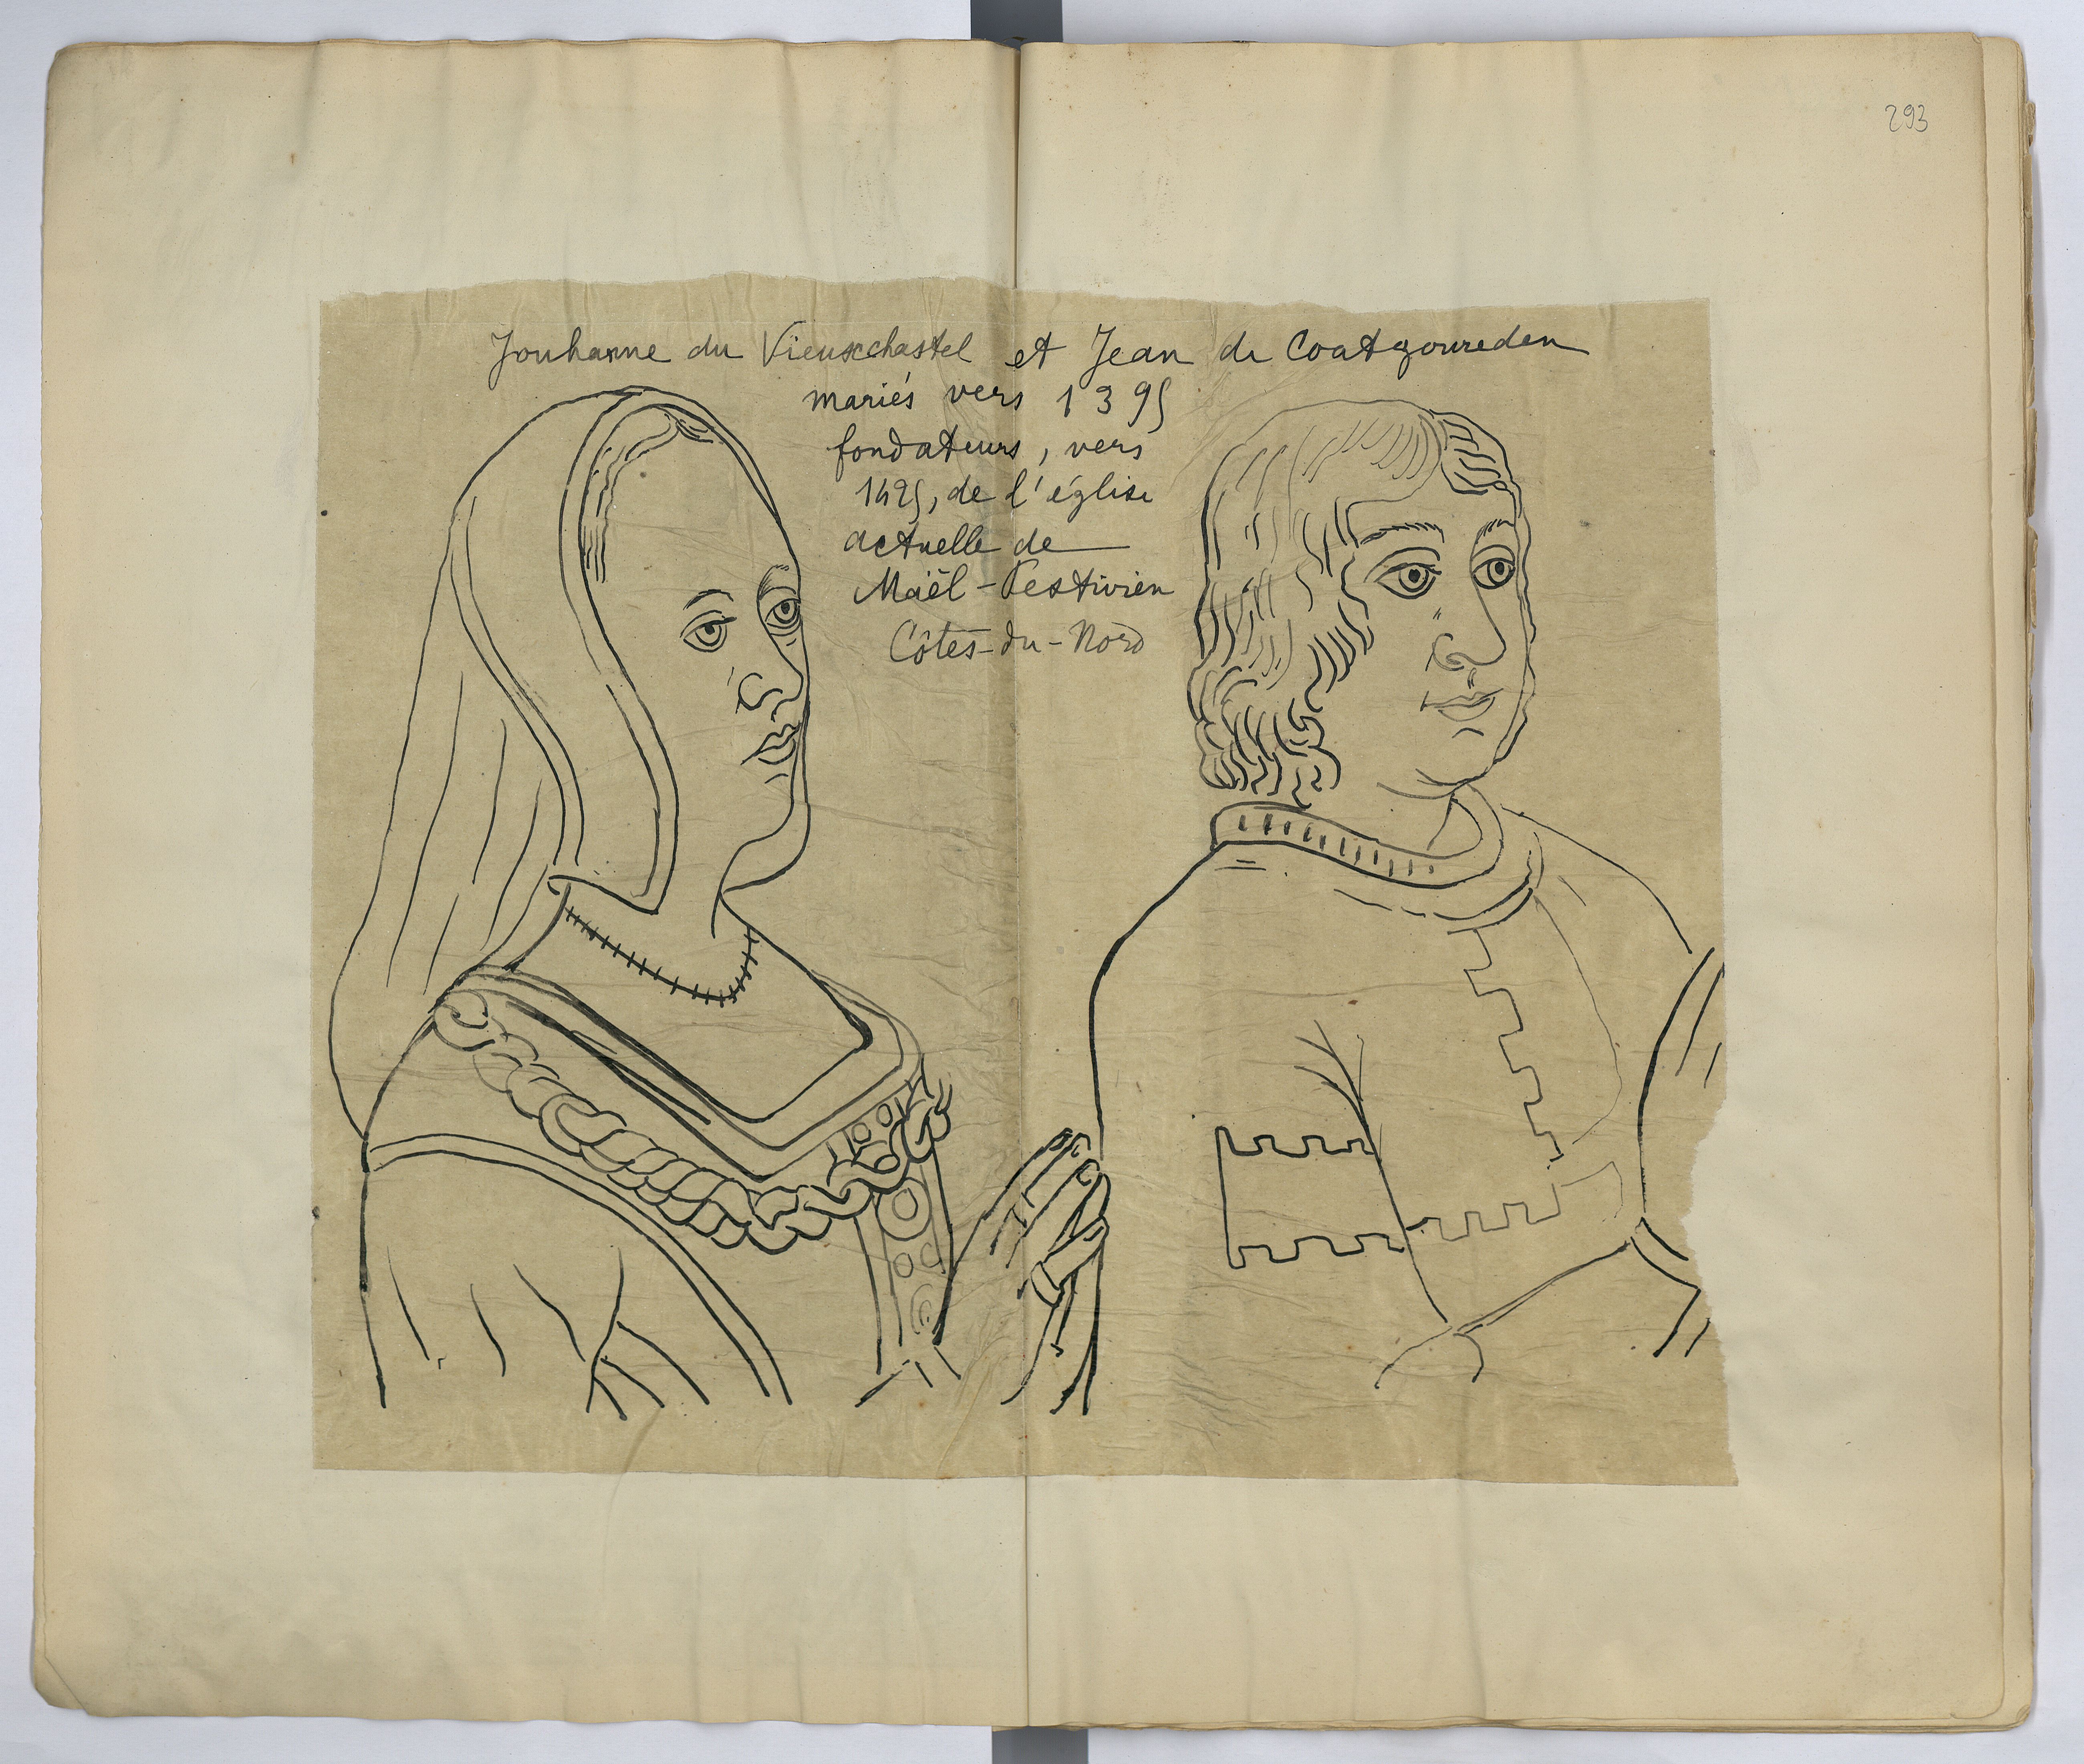 293
Jouhanne du Vieuxchastel et Jean de Coatgoureden
mariés vers 1395
fondateurs, vers
1425, de l'église
actuelle de
Maël-Pestivien
Côtes-du-Nord